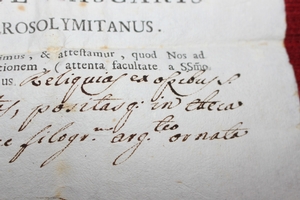 EROSOLYMITANUS.
imus, & attestamur, quod Nos ad
ctionem (attenta facultate a SSmo
us. Reliquias ex ossibus S.
positasq; in theca
filogr. arg. teo ornata